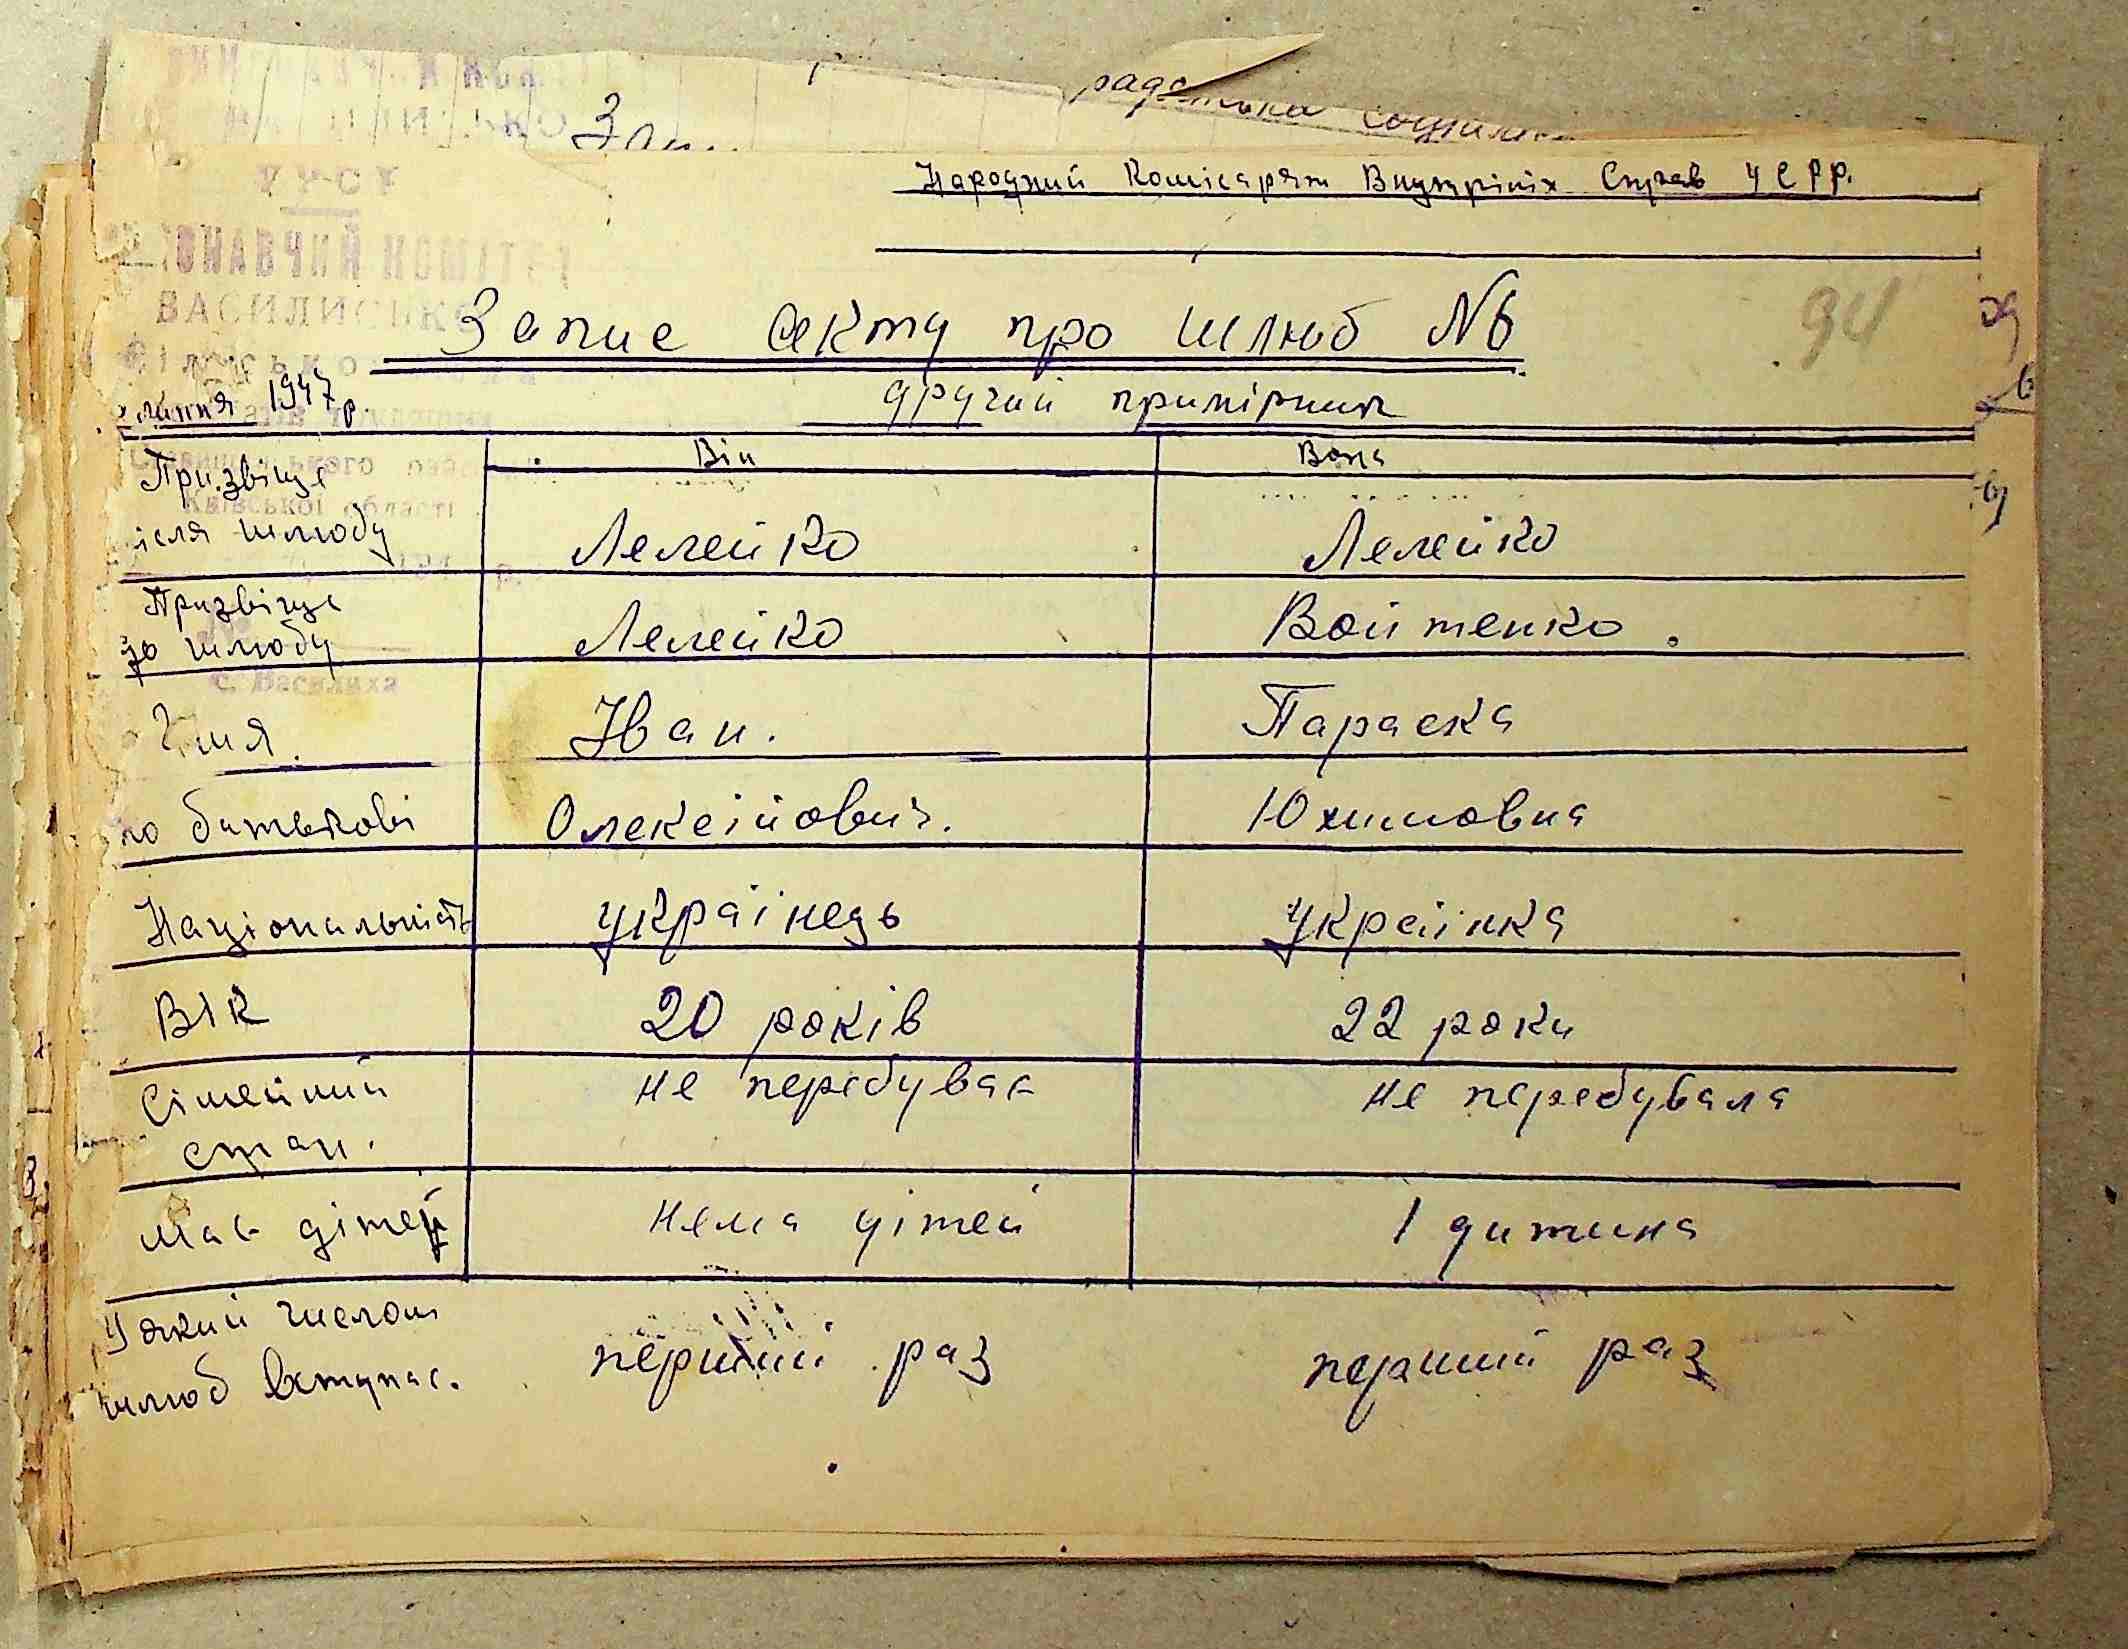 радянська соціаліс
Зап
Народний Комісаріят Внутрішніх Справ УСРР.
УРСР
ВИКОНАВЧИЙ КОМІТЕТ
ВАСИЛИСЬКО
Запис акту про шлюб №6
94
липня 1947 р. другий примірник
Він Вона
Призвіще
ісля шлюбу Лелейко Лелейко
Київської області
Призвіще
до шлюбу Лелейко Войтенко.
с. Василиха
Імя. Іван. Параска
по батькові Олексійович. Юхимовна
Національність українець українка
ВІК 20 років 22 роки
Сімейний не перебував не перебувала
стан.
Має дітей нема дітей 1 дитина
У який числом
шлюб вступає. перший раз перший раз